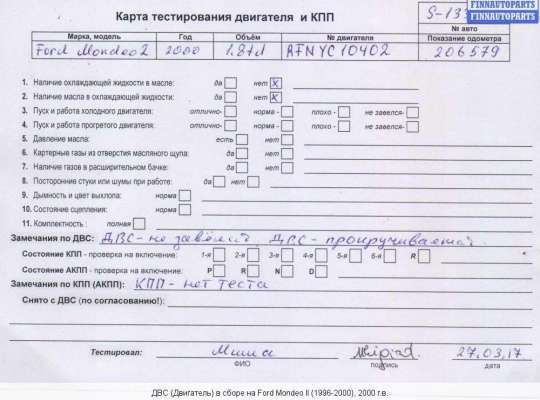 Карта тестирования двигателя и КПП
FINNAUTOPARTS
FINNAUTOPARTS
№ авто
Марка, модель Год Объём № двигателя Показание одометра
Ford Mondeo 2 2000 1.8td RFNYC10402 206579
1. Наличие охлаждающей жидкости в масле: да нет X
2. Наличие масла в охлаждающей жидкости: да нет X
3. Пуск и работа холодного двигателя: отлично- норма - плохо - не завелся-
4. Пуск и работа прогретого двигателя: отлично- норма - плохо - не завелся-
5. Давление масла: есть нет
6. Картерные газы из отверстия масляного щупа: да нет
7. Наличие газов в расширительном бачке: да нет
8. Посторонние стуки или шумы при работе: да нет
9. Дымность и цвет выхлопа: норма
10. Состояние сцепления: норма
11. Комплектность : полная
Замечания по ДВС: ДВС - не заведён, ДВС - прокручиваемый.
Состояние КПП - проверка на включение: 1-я 2-я 3-я 4-я 5-я 6-я R
Состояние АКПП - проверка на включение: P R N D
Замечания по КПП (АКПП): КПП - нет теста
Снято с ДВС (по согласованию!):
Тестировал: Миша 27.03.17
ФИО подпись дата
ДВС (Двигатель) в сборе на Ford Mondeo II (1996-2000), 2000 г.в.